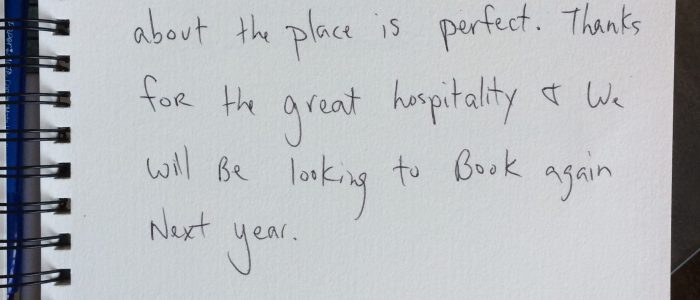 about the place is perfect. Thanks
for the great hospitality & We
will Be looking to Book again
Next year.